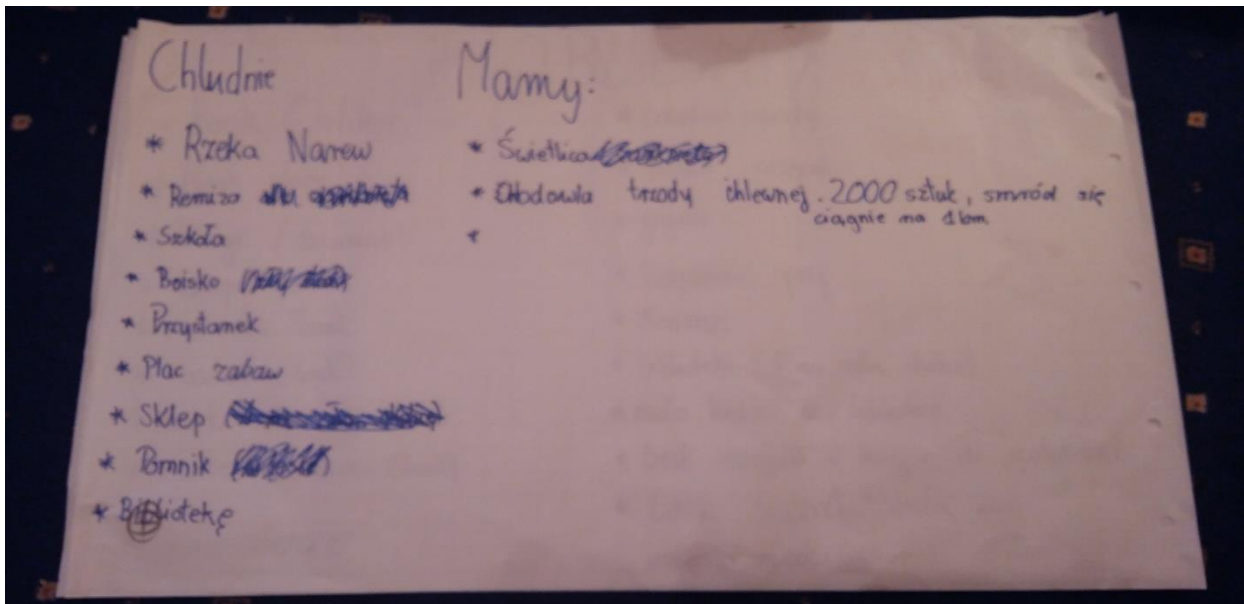 Chludnie
* Rzeka Narew
* Remiza
* Szkoła
* Boisko
* Przystanek
* Plac zabaw
* Sklep
* Pomnik
* Bibliotekę
Mamy:
* Świetlica
* Chodowla trzody chlewnej. 2000 sztuk, smród się
ciągnie na 1 km
*